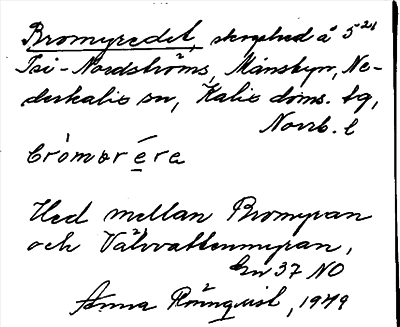 Bromyredet, skogshed å 5²¹
Isi-Nordströms, Månsbyn, Ne-
derkalix sn, Kalix doms. tg,
Norrb. l
bròmөréra
Hed mellan Bromyran
och Välvvattenmyran,
En 37 NO
Anna Rönnquist, 1949